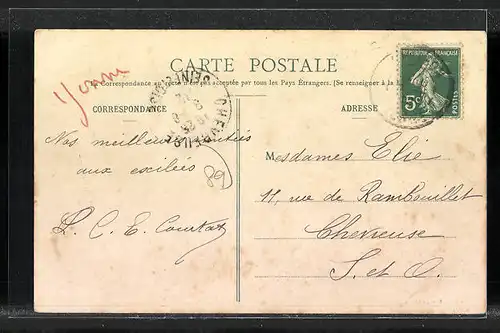 CARTE POSTALE
La Correspondance au recto n'est pas acceptée par tous les Pays Étrangers. (Se renseigner à la
CORRESPONDANCE
ADRESSE
REPUBLIQUE FRANÇAISE
5c
POSTES
CHEVREUSE
SEINE-ET-OISE
Yonne
Nos meilleures amitiés
aux exilées
L. C. E. Courtat
68
Mesdames Elie
11, rue de Rambouillet
Chevreuse
S. et O.